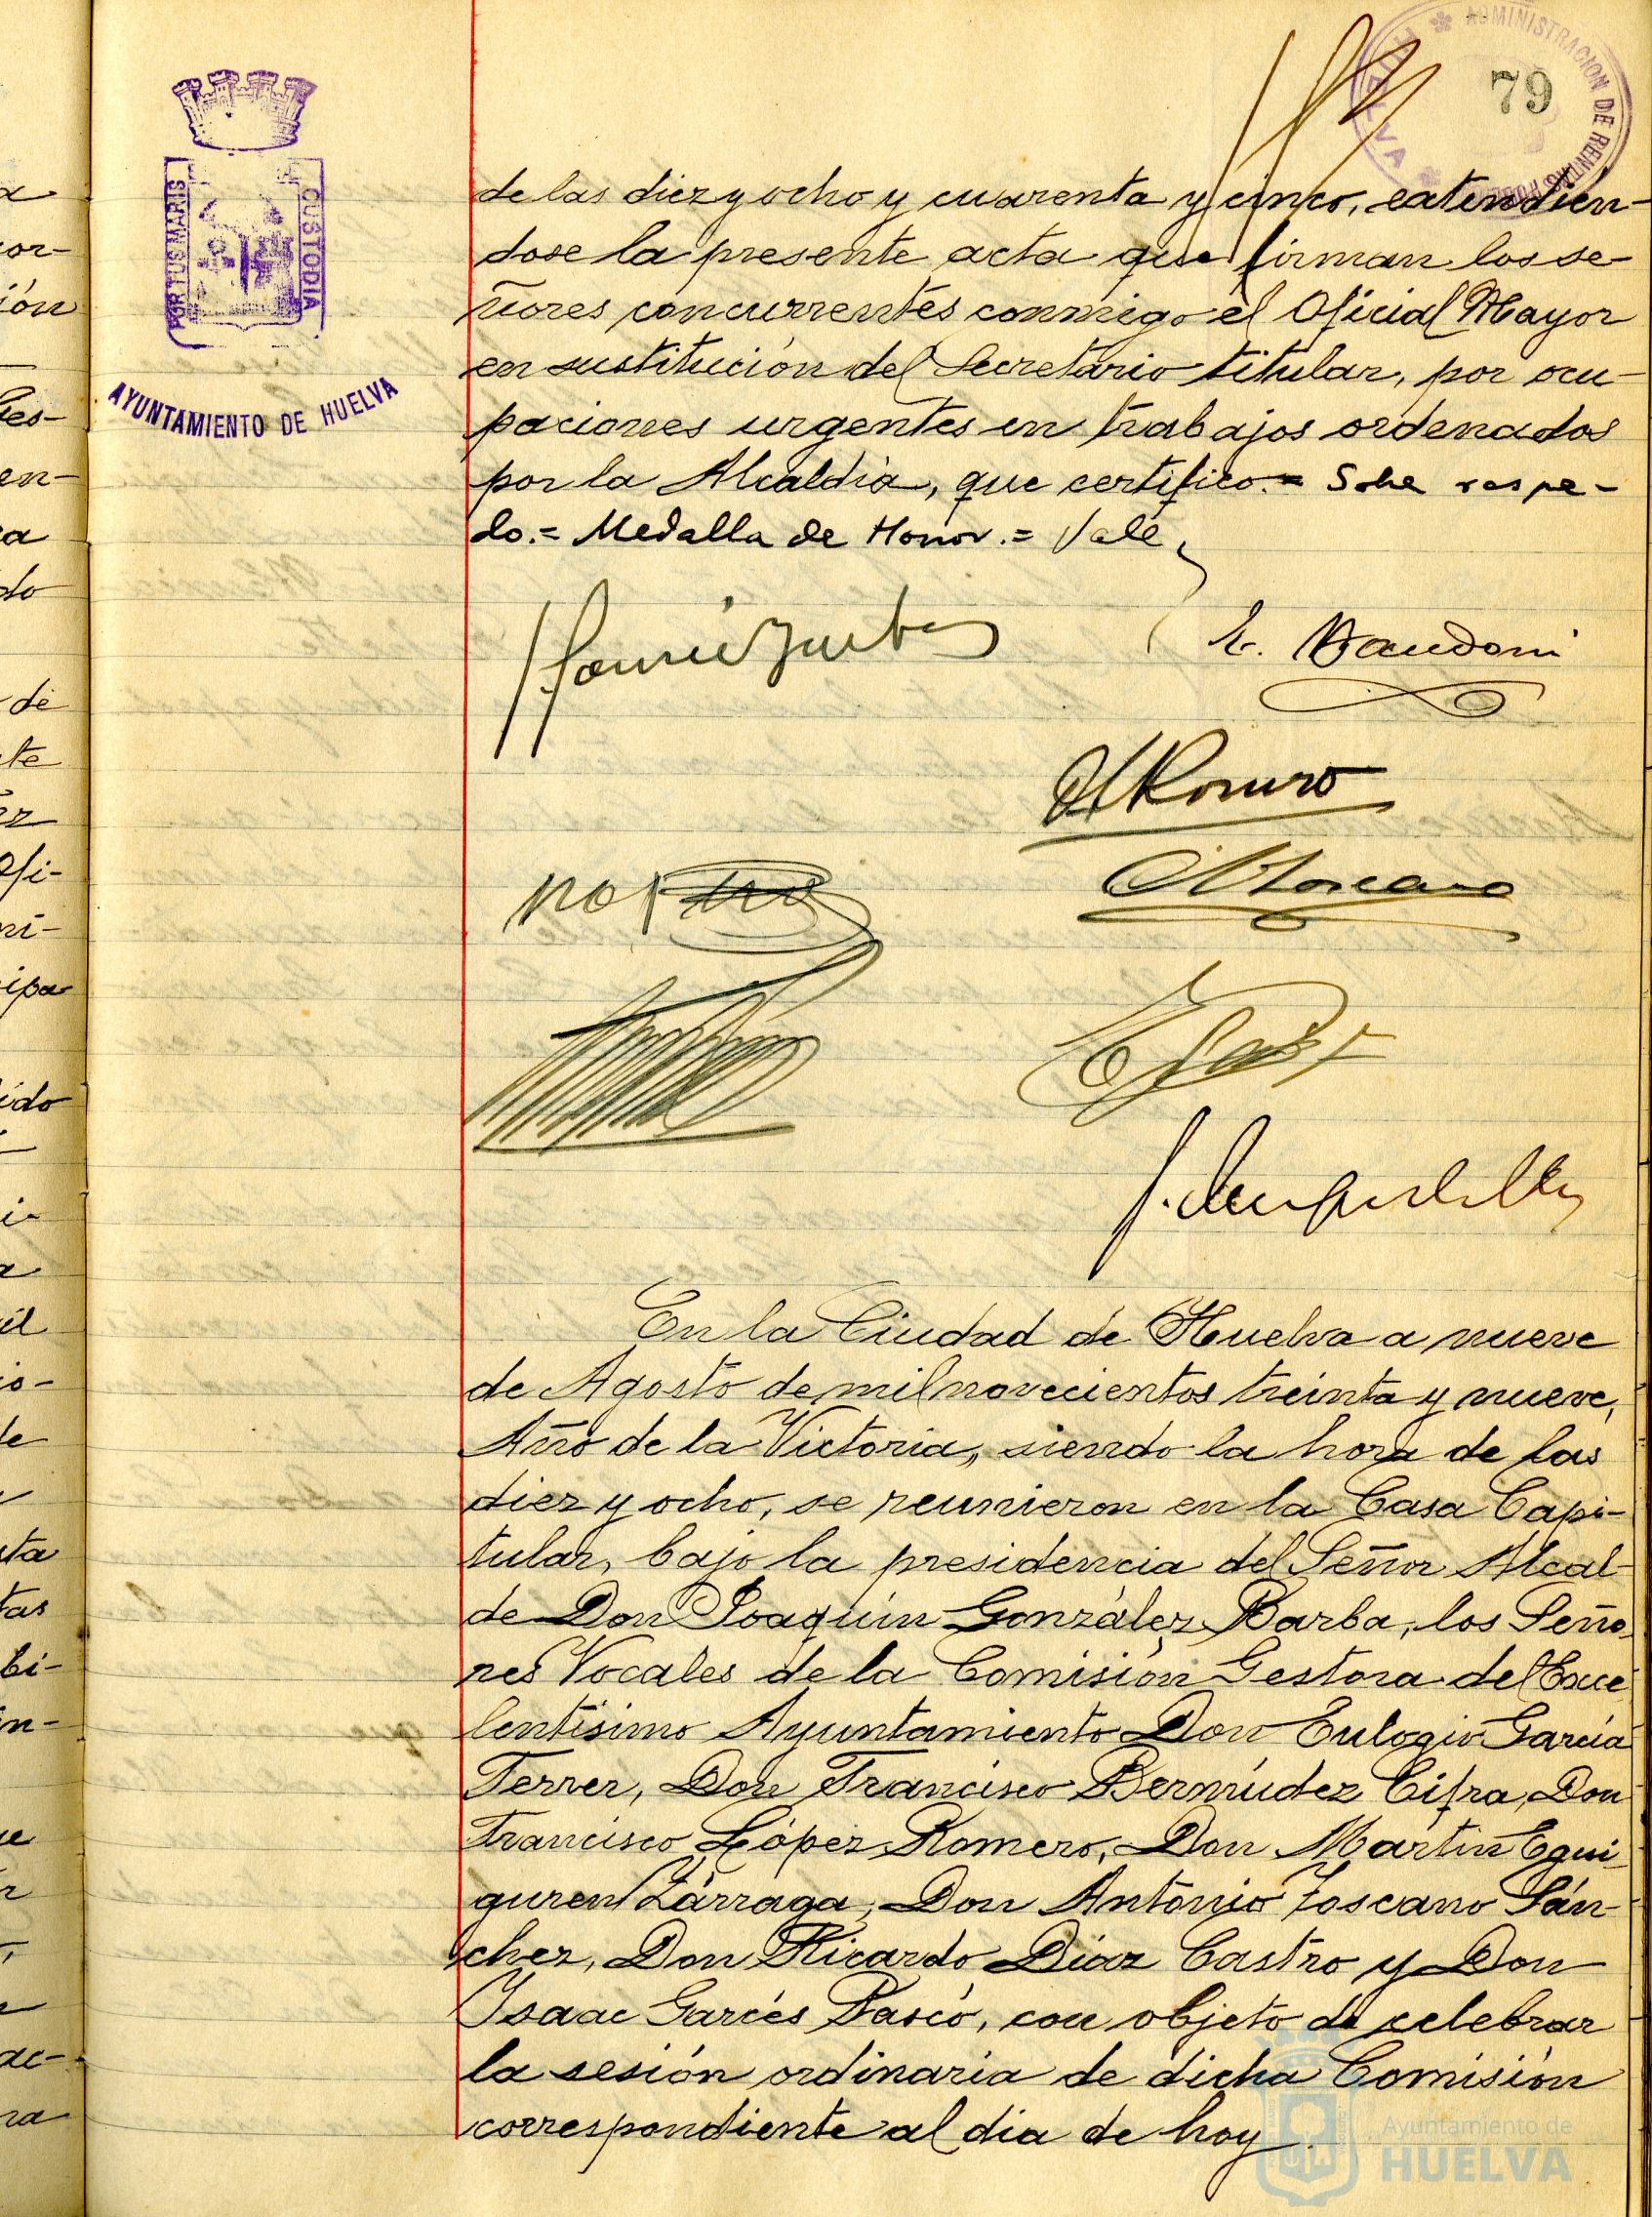 79
ADMINISTRACION DE RENTAS
HUELVA
PORTUS MARIS
CUSTODIA
AYUNTAMIENTO DE HUELVA
de las diez y ocho y cuarenta y cinco, extendién-
dose la presente acta que firman los se-
ñores concurrentes conmigo el Oficial Mayor
en sustitución del Secretario titular, por ocu-
paciones urgentes en trabajos ordenados
por la Alcaldía, que certifico.= Sobe raspa-
do.= Medalla de Honor.= Vale
Romero
Toscano
En la Ciudad de Huelva a nueve
de Agosto de mil novecientos treinta y nueve,
Año de la Victoria, siendo la hora de las
diez y ocho, se reunieron en la Casa Capi-
tular, bajo la presidencia del Señor Alcal-
de Don Joaquín González Barba, los Seño-
res Vocales de la Comisión Gestora del Exce
lentísimo Ayuntamiento Don Eulogio García
Ferrer, Don Francisco Bermúdez Cifra, Don
Francisco López Romero, Don Martín Egui-
guren Zárraga, Don Antonio Toscano Sán-
chez, Don Ricardo Díaz Castro y Don
Isaac Garcés Pascó, con objeto de celebrar
la sesión ordinaria de dicha Comisión
correspondiente al dia de hoy.
Ayuntamiento de
HUELVA